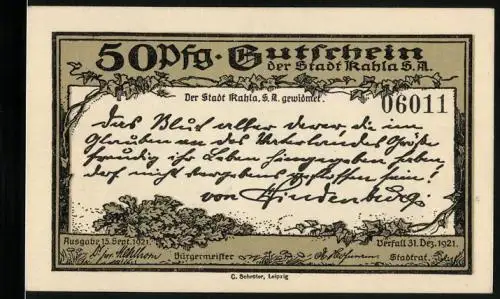 50 Pfg. Gutschein
der Stadt Kahla S.A.
Der Stadt Kahla, S.A. gewidmet.
06011
Das Blut aller derer, die im
Glauben an des Vaterlandes Größe
freudig ihr Leben hingegeben haben,
darf nicht vergebens geflossen sein!
von Hindenburg
Ausgabe 15. Sept. 1921. Verfall 31. Dez. 1921.
Bürgermeister Stadtrat.
C. Schröter, Leipzig